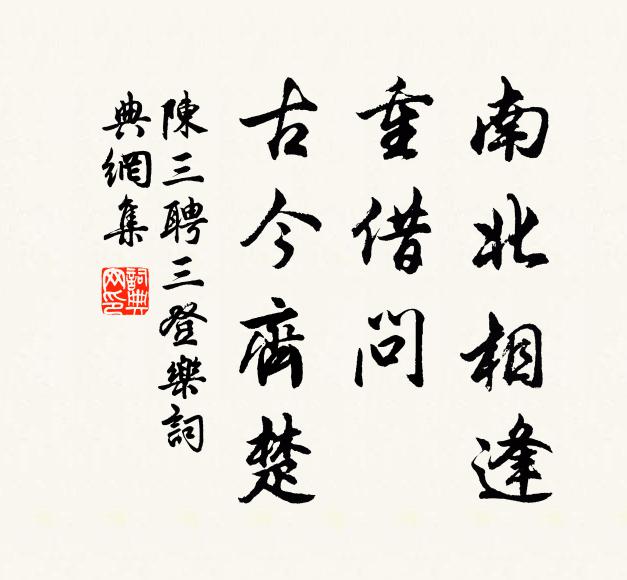 南北相逢
重借問
古今齊楚
陳三聘三登樂詞
典網集
詞典網印